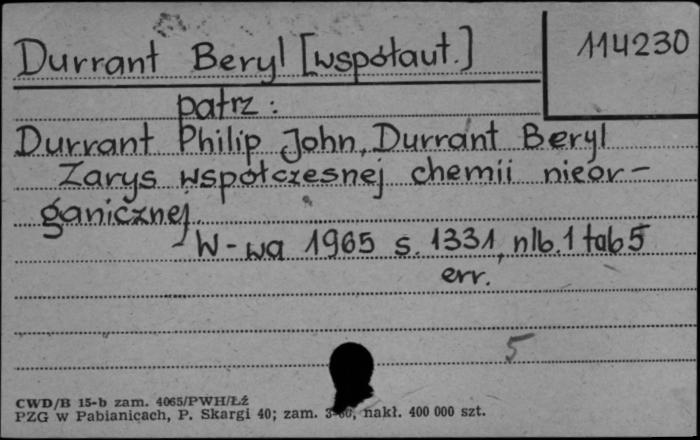 Durrant Beryl [współaut.]
114230
patrz:
Durrant Philip John, Durrant Beryl
Zarys współczesnej chemii nieor-
ganicznej.
W-wa 1965 s. 1331, nlb. 1 tab 5
err.
5
CWD/B 15-b zam. 4065/PWH/Łź
PZG w Pabianicach, P. Skargi 40; zam. nakł. 400 000 szt.